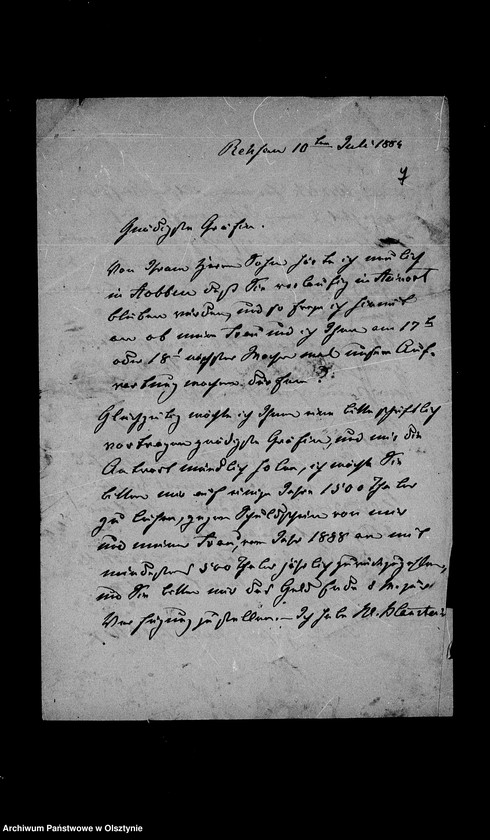 Rehsau 10ten Juli 1884
7
Gnädigste Gräfin.
Von Ihrem Herrn Sohn hörte ich neulich
in Kobben daß Sie vorläufig in Steinort
bleiben würden, und so frage ich hiermit
an ob meine Frau und ich Ihnen am 17t
oder 18t nächster Woche mal unsere Auf-
wartung machen dürfen?
Gleichzeitig möchte ich Ihnen eine Bitte schriftlich
vortragen gnädigste Gräfin, und mir die
Antwort mündlich holen, ich möchte Sie
bitten mir auf einige Jahre 1500 Thaler
zu leihen, gegen Schuldschein von mir
und meiner Frau, vom Jahr 1888 an mit
mindestens 300 Thaler jährlich zurückzugeben,
und Sie bitten mir das Geld Ende d. M. zur
Verfügung zu stellen. – Ich habe Kl.
Archiwum Państwowe w Olsztynie